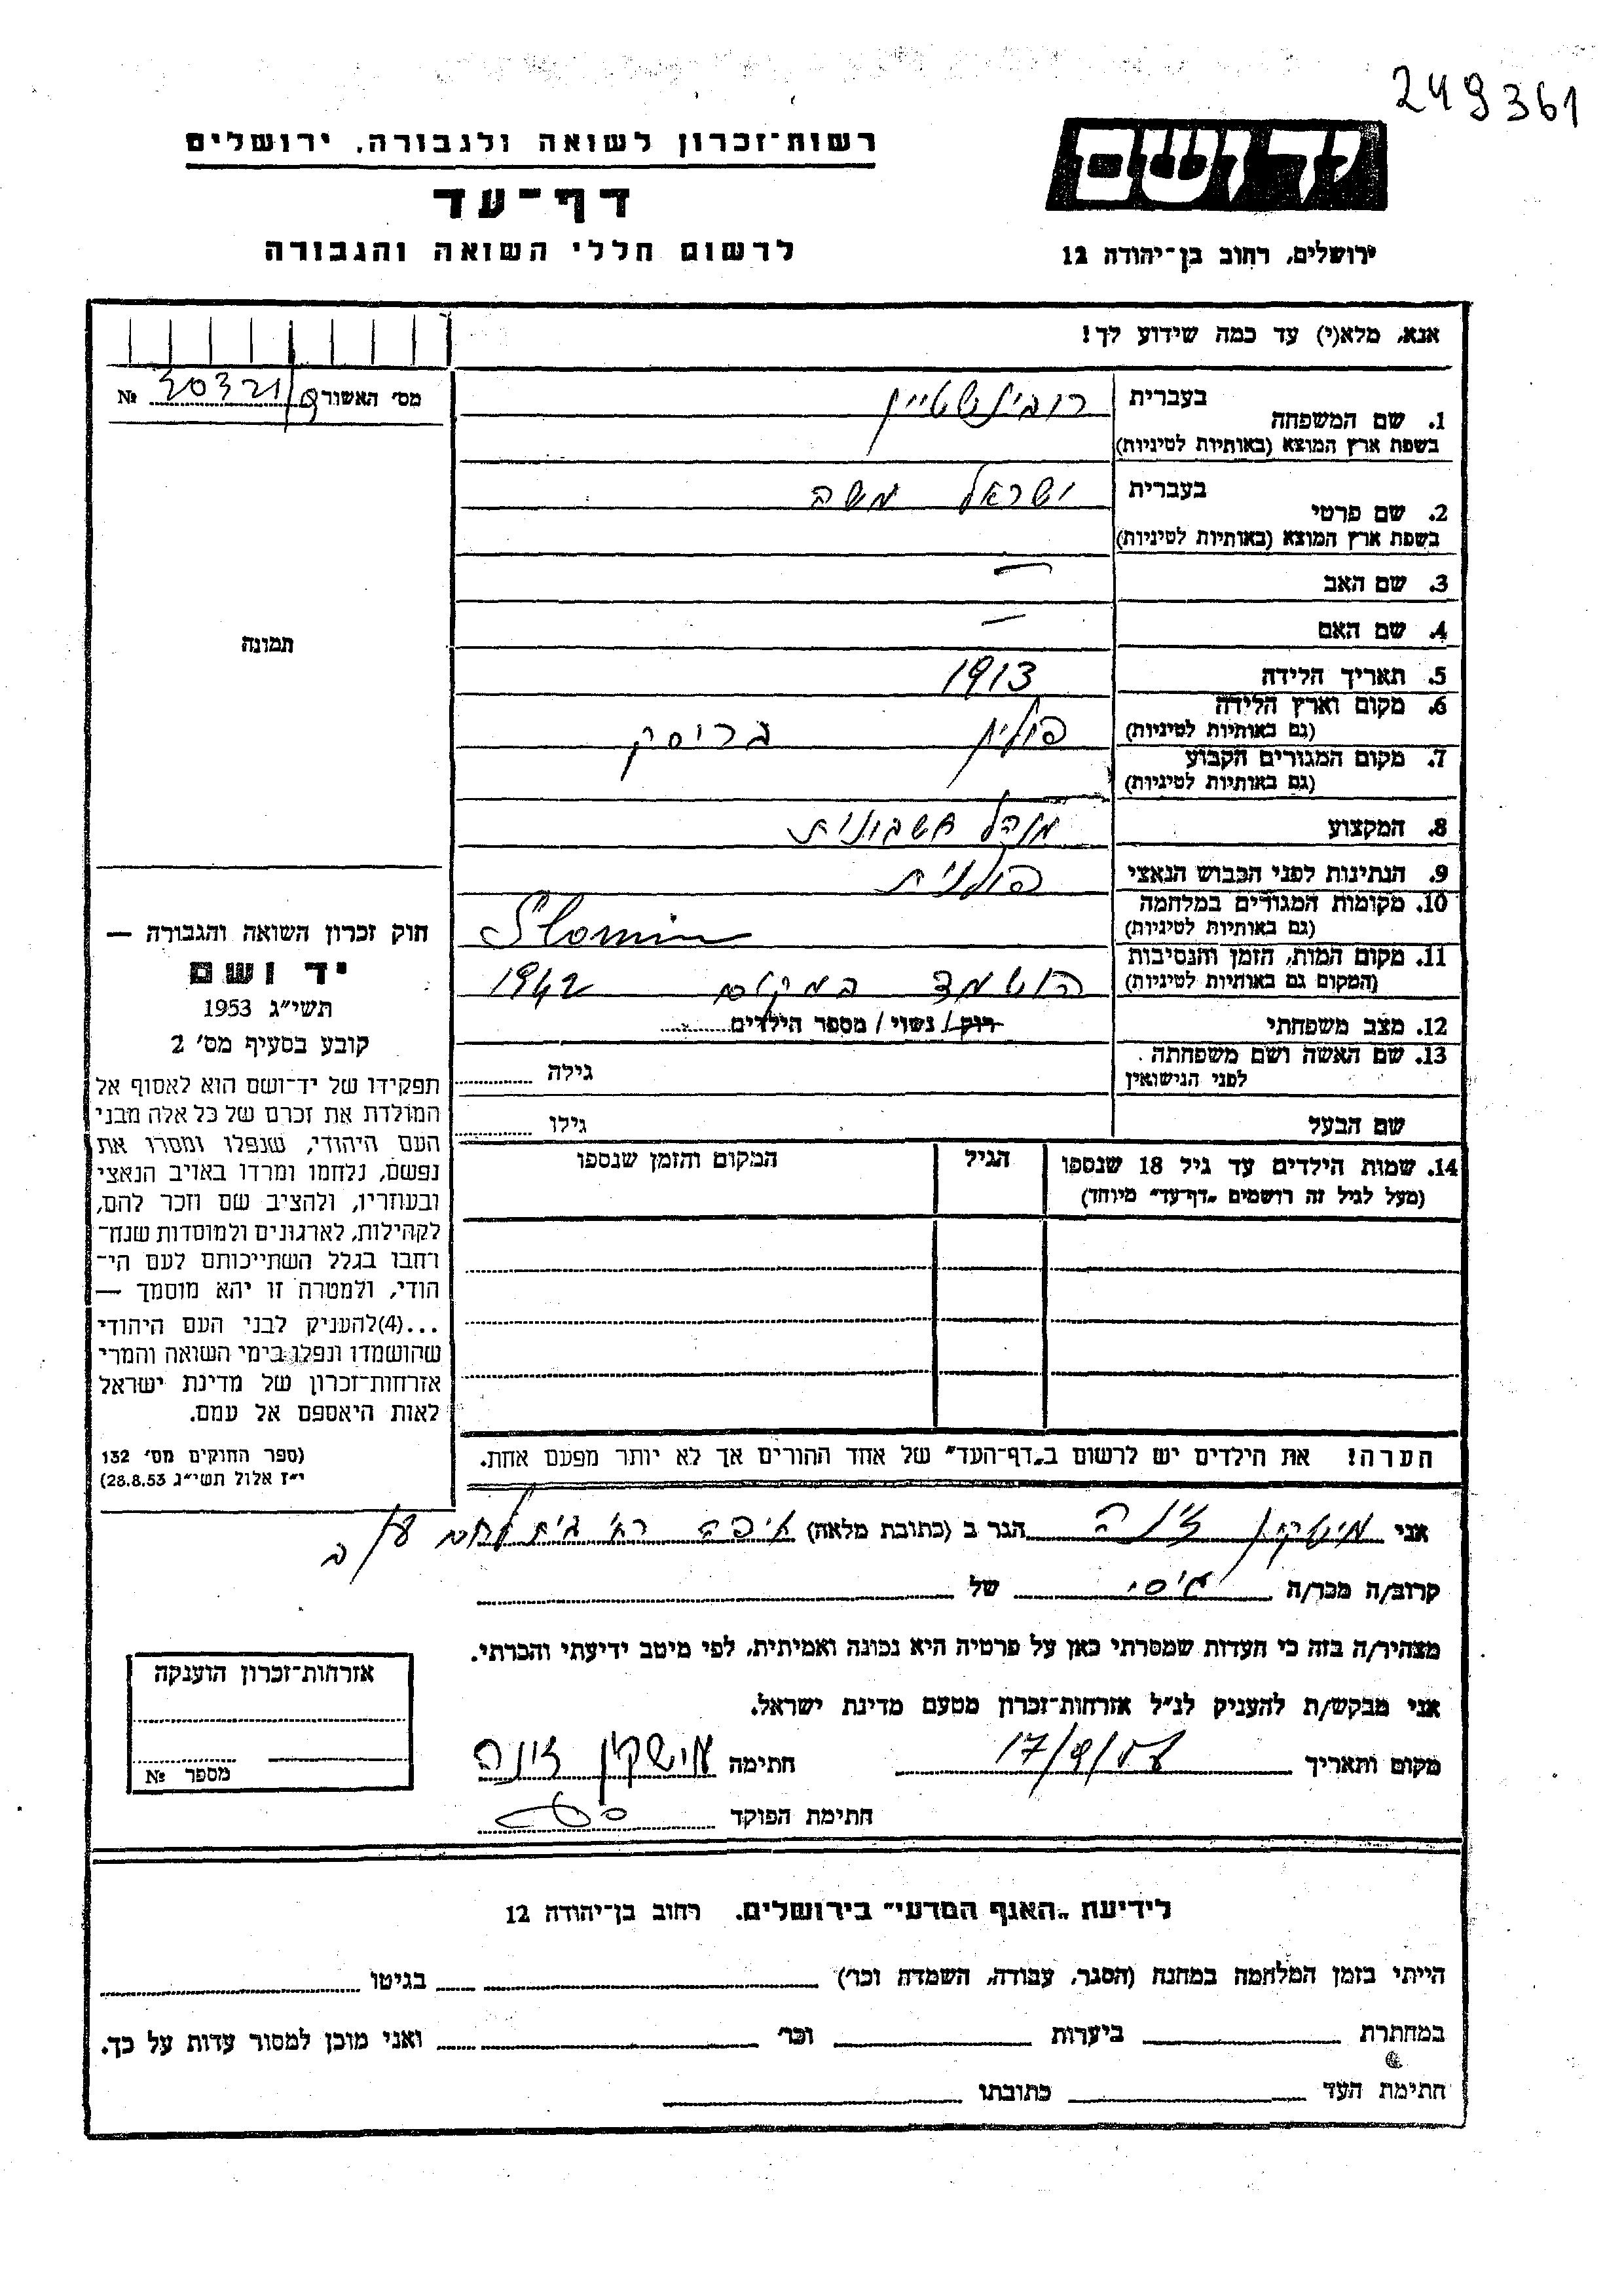 249361
רשות־זכרון לשואה ולגבורה, ירושלים
דף־עד
לרשום חללי השואה והגבורה
יד ושם
ירושלים, רחוב בן־יהודה 12
אנא, מלא(י) עד כמה שידוע לך!
מס' האשור 20321/9 №
1. שם המשפחה בעברית רובינשטיין
בשפת ארץ המוצא (באותיות לטיניות)
2. שם פרטי בעברית ישראל משה
בשפת ארץ המוצא (באותיות לטיניות)
3. שם האב —
4. שם האם —
5. תאריך הלידה 1913
6. מקום וארץ הלידה (גם באותיות לטיניות) פולין בריסק
7. מקום המגורים הקבוע (גם באותיות לטיניות)
8. המקצוע מנהל חשבונות
9. הנתינות לפני הכבוש הנאצי פולנית
10. מקומות המגורים במלחמה (גם באותיות לטיניות) Slonim
11. מקום המות, הזמן והנסיבות (המקום גם באותיות לטיניות) הושמד במקום 1942
12. מצב משפחתי רוק / נשוי / מספר הילדים
13. שם האשה ושם משפחתה לפני הנישואין גילה
שם הבעל גילו
14. שמות הילדים עד גיל 18 שנספו הגיל המקום והזמן שנספו
(מעל לגיל זה רושמים „דף־עד" מיוחד)
הערה! את הילדים יש לרשום ב„דף־העד" של אחד ההורים אך לא יותר מפעם אחת.
תמונה
חוק זכרון השואה והגבורה —
יד ושם
תשי"ג 1953
קובע בסעיף מס' 2
תפקידו של יד־ושם הוא לאסוף אל
המולדת את זכרם של כל אלה מבני
העם היהודי, שנפלו ומסרו את
נפשם, נלחמו ומרדו באויב הנאצי
ובעוזריו, ולהציב שם וזכר להם,
לקהילות, לארגונים ולמוסדות שנח־
רבו בגלל השתייכותם לעם הי־
הודי, ולמטרה זו יהא מוסמך —
...(4)להעניק לבני העם היהודי
שהושמדו ונפלו בימי השואה והמרי
אזרחות־זכרון של מדינת ישראל
לאות היאספם אל עמם.
(ספר החוקים מס' 132
י"ז אלול תשי"ג 28.8.53)
אני זינה הגר ב (כתובת מלאה) חיפה רח' בית לחם
קרוב/ה מכר/ה גיסי של
מצהיר/ה בזה כי העדות שמסרתי כאן על פרטיה היא נכונה ואמיתית, לפי מיטב ידיעתי והכרתי.
אני מבקש/ת להעניק לנ"ל אזרחות־זכרון מטעם מדינת ישראל.
מקום ותאריך חתימה זינה
חתימת הפוקד
אזרחות־זכרון הוענקה
מספר №
לידיעת „האגף המדעי" בירושלים, רחוב בן־יהודה 12
הייתי בזמן המלחמה במחנה (הסגר, עבודה, השמדה וכו') בגיטו
במחתרת ביערות וכו' ואני מוכן למסור עדות על כך.
חתימת העד כתובתו